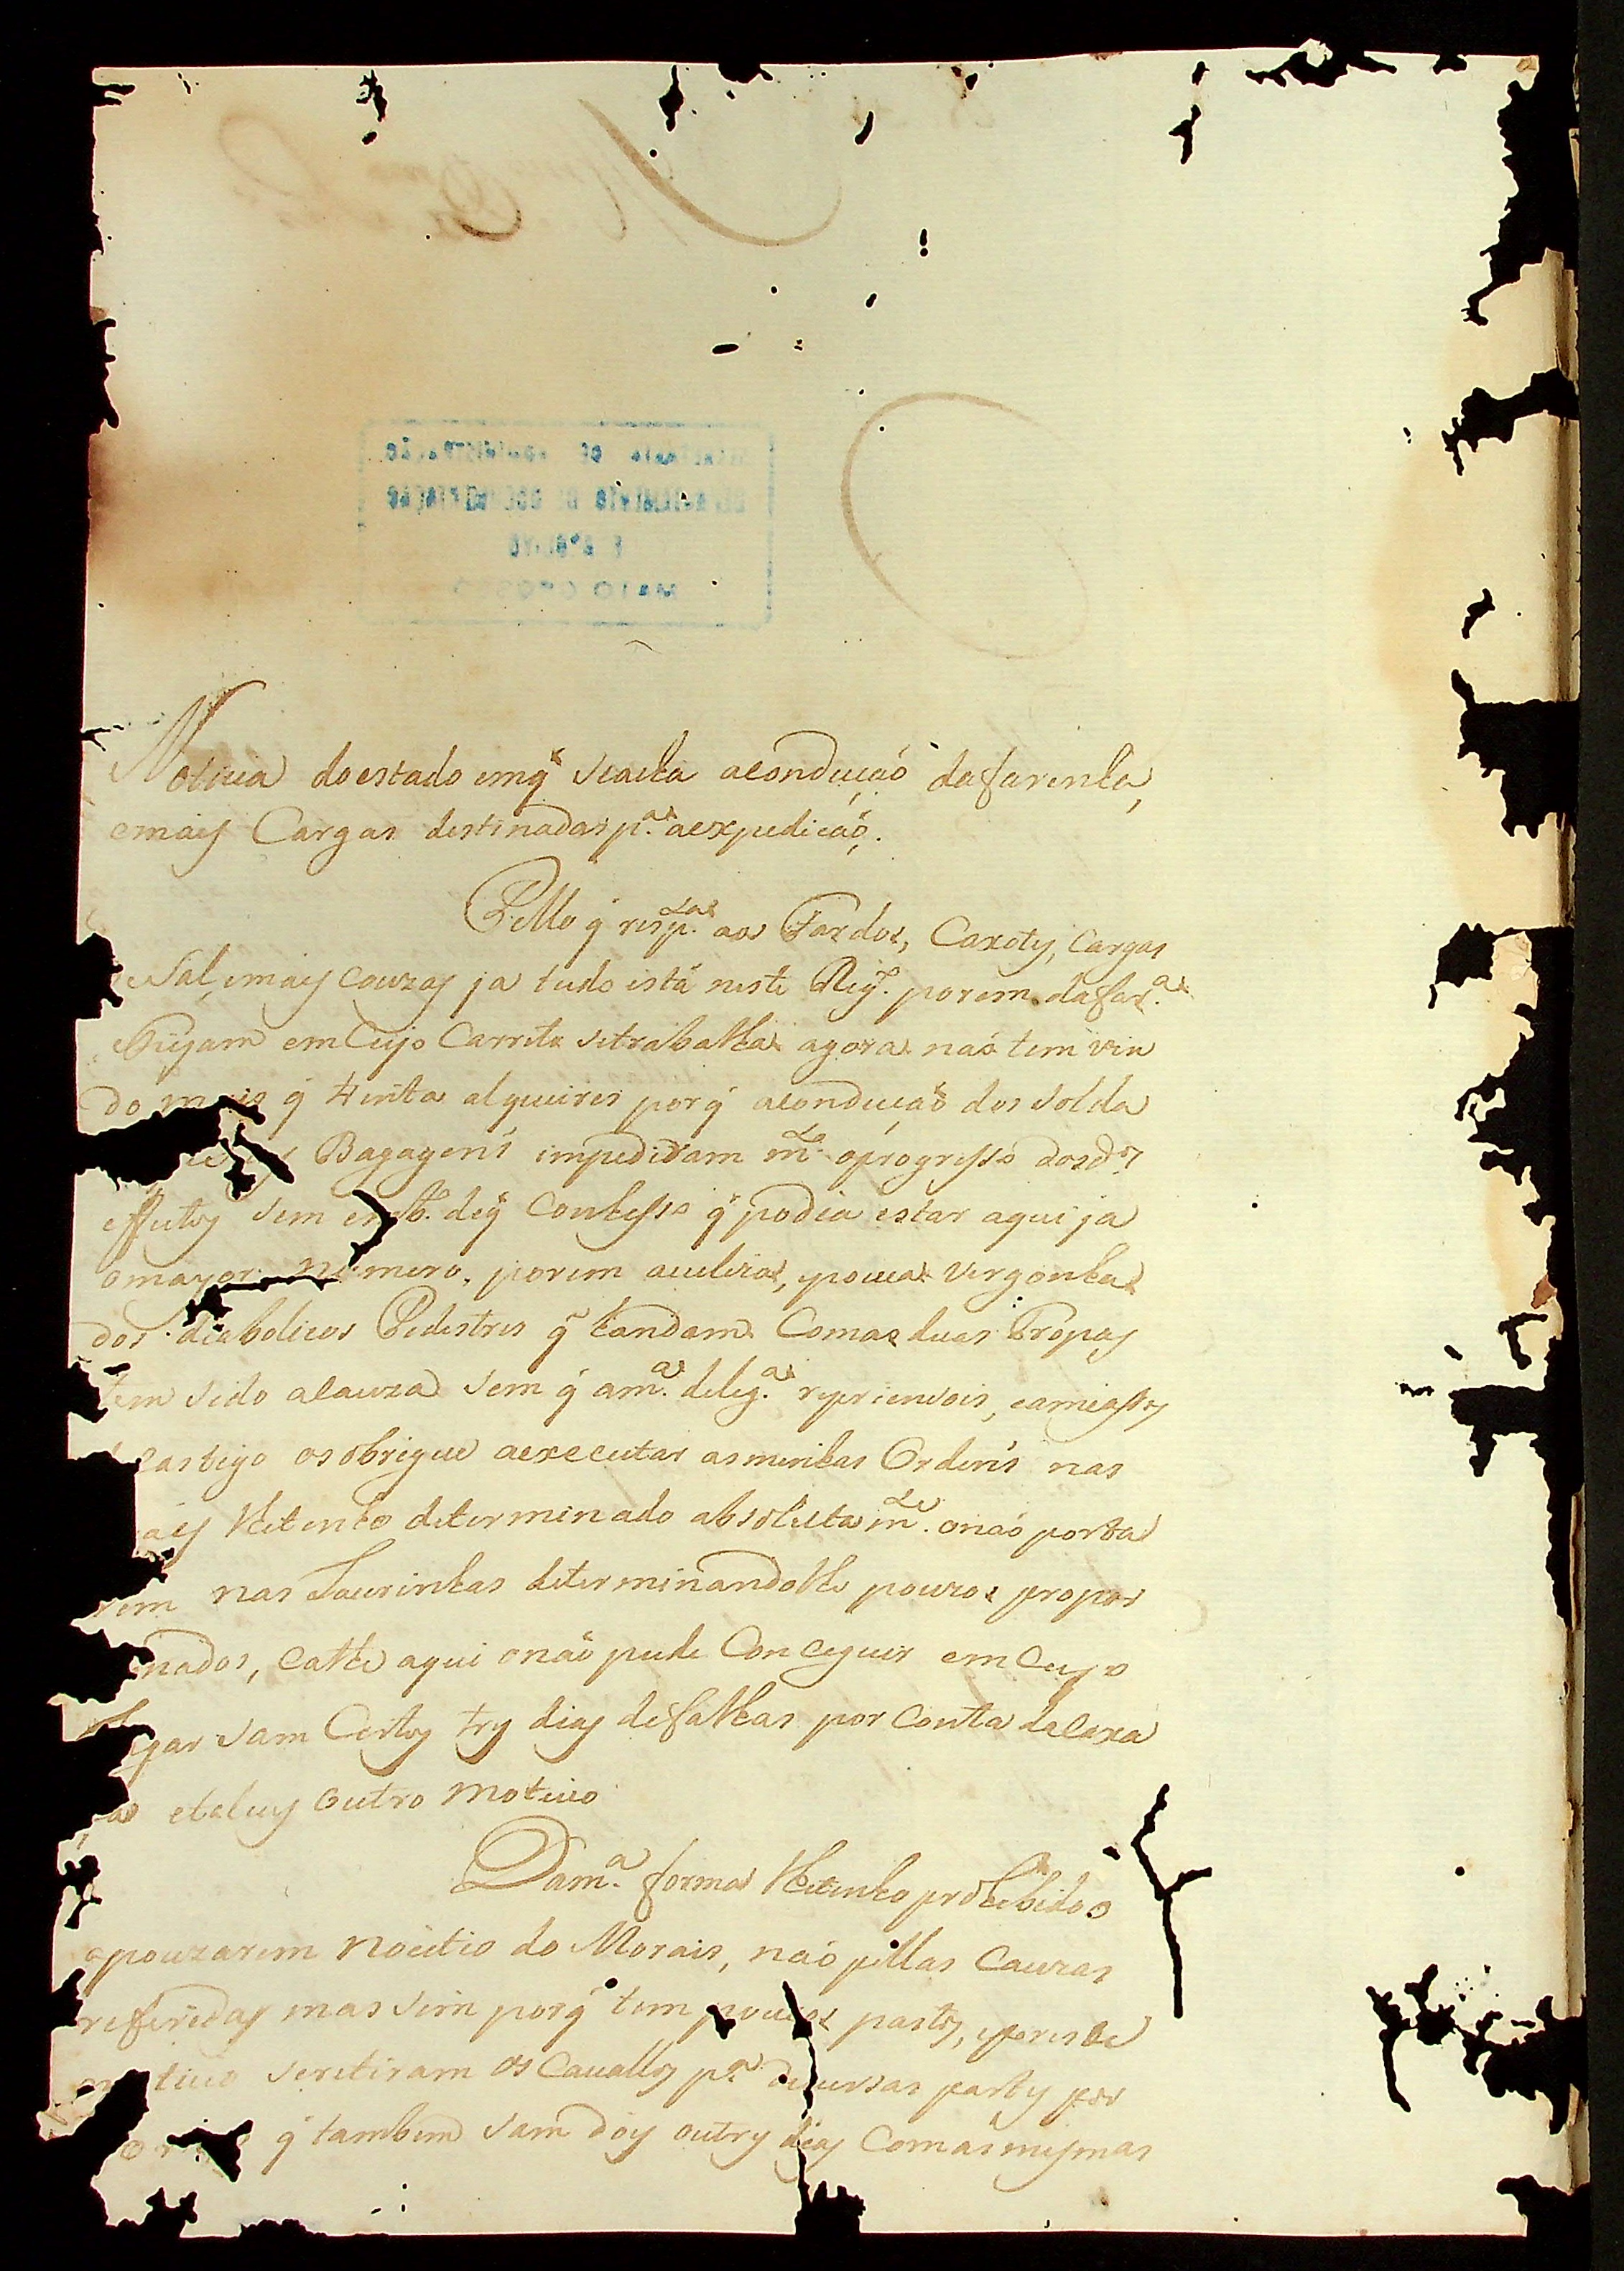 Noticia do estado emq̃ seacha aConduçaõ dafarinha,
emais Cargas destinadas p.ª aexpediçaõ.
Pello q̃ resp.ta aos Fardos, Caxotes, Cargas
eSal, emais couzas ja tudo está neste Reg.º porem dafar.ª
em Cujo Carreto setrabalha agora naõ tem vin
do mais q̃ trinta alqueires porq̃ aconduçaõ dos Solda
Bagagens impediram m.to oprogresso dos d.os
effeitos sem emb.º deq̃ Conheço q̃ podia estar aqui ja
omayor numero, porem aveleza, epouca vergonha
dos diabolicos Pedestres q̃ handam Comas duas Tropas
tem sido aCauza sem q̃ am.ª delig.ª repriensois, eamiassos
Castigo osobrigue aexecutar asminhas Ordens nas
lhetenho determinado absoluta m.te onaõ porta
rem nas Laurinhas determinandolhe pouzos propor
nados, eathe aqui onaõ pude Conceguir em Cujo
lugar sam Certos tres dias defalhas por Conta dalaxa
etalves outro motivo
Dam.ª forma lhetenho prohibido o
apouzarem nocitio do Morais, naõ pellas Cauzas
referidas mas sim porq̃ tem poucos pastos, eporeste
motivo seretiram os Cavallos p.ª diversas partes por
q̃ tambem sam dois outres dias Comasmesmas